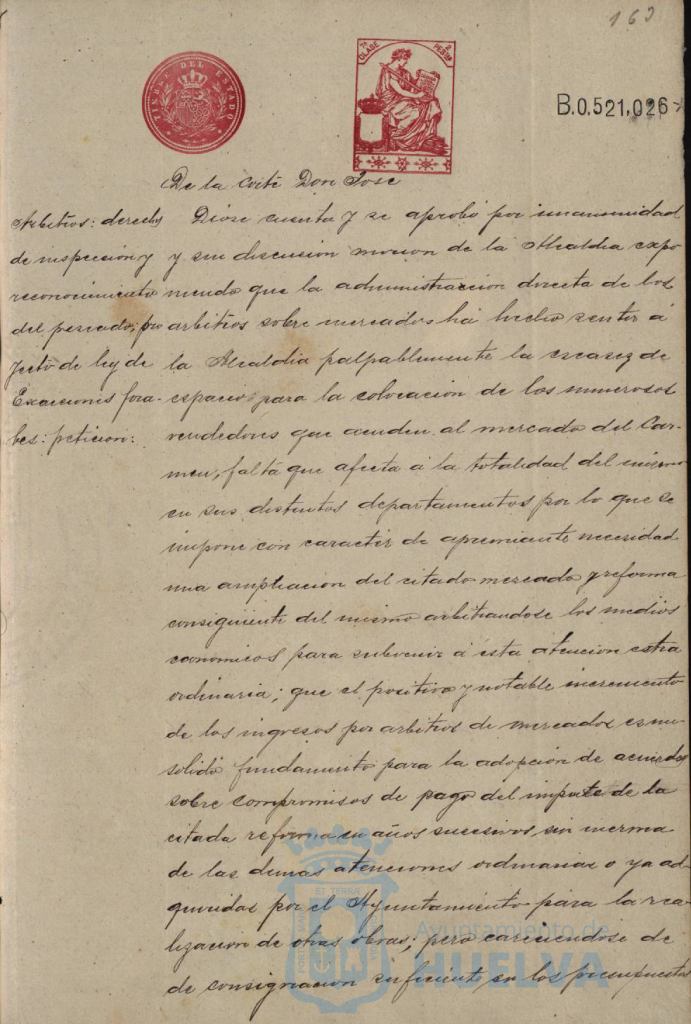 163
TIMBRE DEL ESTADO
7ª CLASE
2 PESTAS
B.0.521,026
De la Corte Don Jose
Arbitrios: derechos
de inspeccion y
reconocimiento
del pescado; pro
yecto de ley de
Exacciones fora-
les: peticion:
Diose cuenta y se aprobó por unanimidad
y sin discusion mocion de la Alcaldia expo
niendo que la administracion directa de los
arbitrios sobre mercados ha hecho sentir á
la Alcaldia palpablemente la escasez de
espacio para la colocacion de los numerosos
vendedores que acuden al mercado del Car-
men, falta que afecta á la totalidad del mismo
en sus distintos departamentos por lo que se
impone con caracter de apremiante necesidad
una ampliacion del citado mercado y reforma
consiguiente del mismo arbitrandose los medios
economicos para subvenir á esta atencion extra
ordinaria; que el positivo y notable incremento
de los ingresos por arbitrios de mercados es un
solido fundamento para la adopcion de acuerdos
sobre compromisos de pago del importe de la
citada reforma en años sucesivos, sin merma
de las demas atenciones ordinarias o ya ad-
quiridas por el Ayuntamiento para la rea-
lizacion de otras obras; pero careciendose de
de consignacion suficiente en los presupuestos
Ayuntamiento de
HUELVA